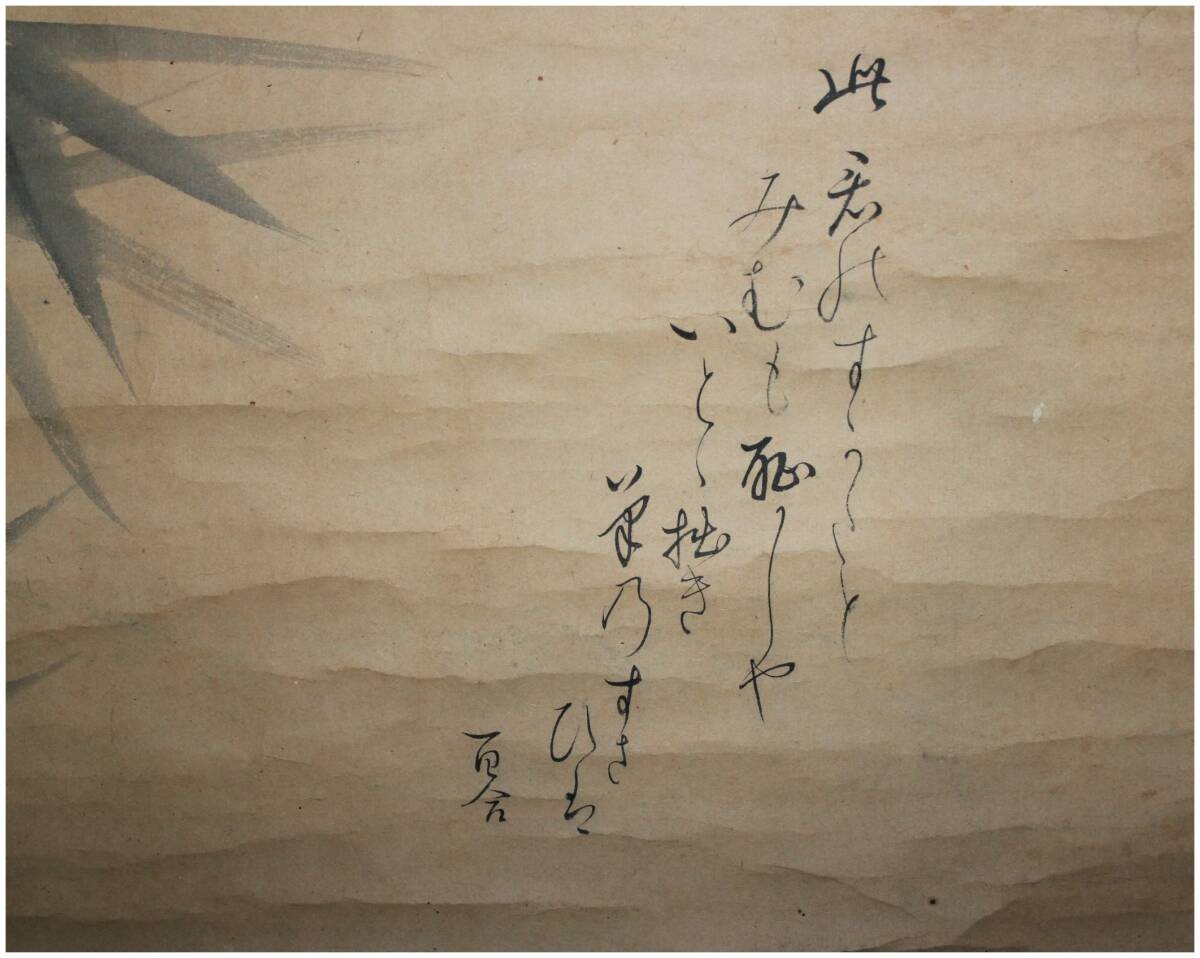 此君のすかたと
みむも恥しや
いとゝ拙き
筆乃すさ
ひを
百合